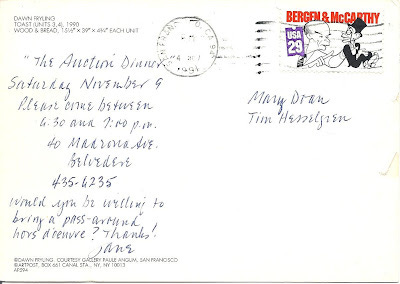 DAWN FRYLING
TOAST (UNITS 3,4), 1990
WOOD & BREAD, 15½" × 39" × 4¾" EACH UNIT
BERGEN & McCARTHY
USA
29
"The Auction Dinner"
Saturday November 9
Please come between
6:30 and 7:00 p.m.
40 Madrona Ave.
Belvedere
435-6235
Would you be willing to
bring a pass-around
hors d'oeuvre? Thanks!
Jane
Mary Doan
Tim Hesselgren
©DAWN FRYLING. COURTESY GALLERY PAULE ANGLIM, SAN FRANCISCO
©ARTPOST, BOX 661 CANAL STA., NY, NY 10013
AP294